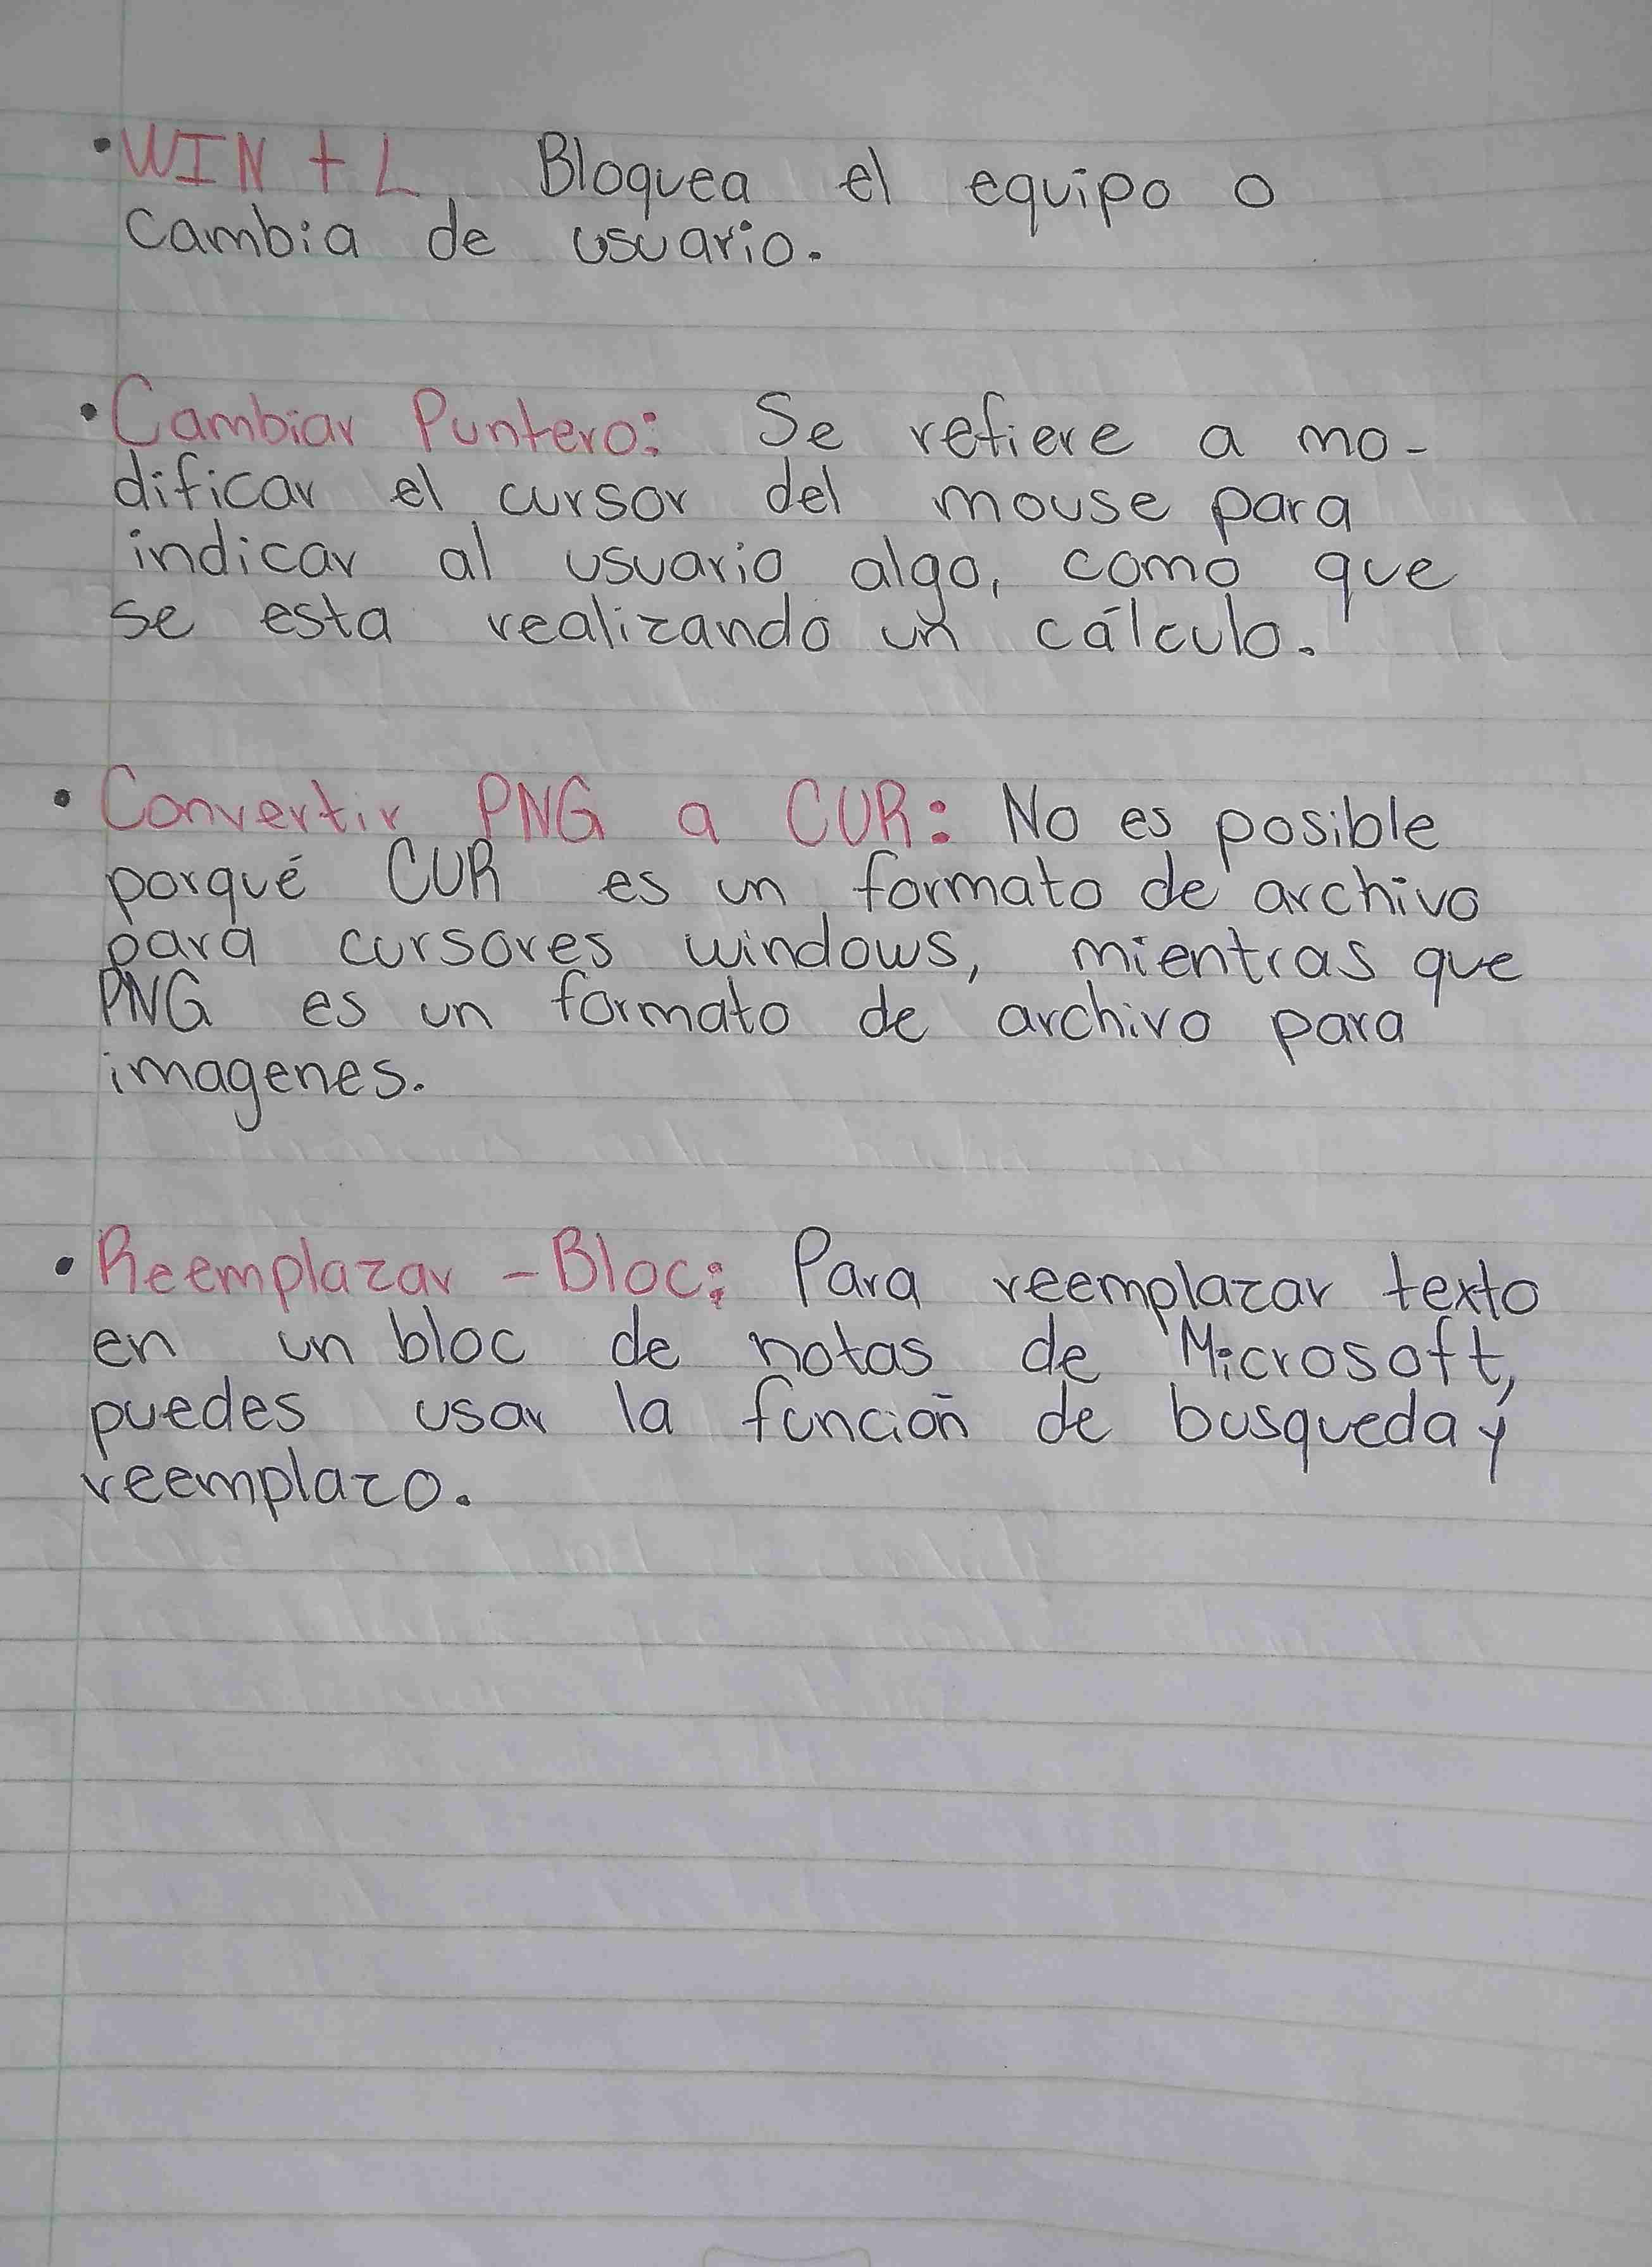 • WIN + L Bloquea el equipo o
cambia de usuario.
• Cambiar Puntero: Se refiere a mo-
dificar el cursor del mouse para
indicar al usuario algo, como que
se esta realizando un cálculo.
• Convertir PNG a CUR: No es posible
porqué CUR es un formato de archivo
para cursores windows, mientras que
PNG es un formato de archivo para
imagenes.
• Reemplazar - Bloc: Para reemplazar texto
en un bloc de notas de Microsoft,
puedes usar la función de busqueda y
reemplazo.